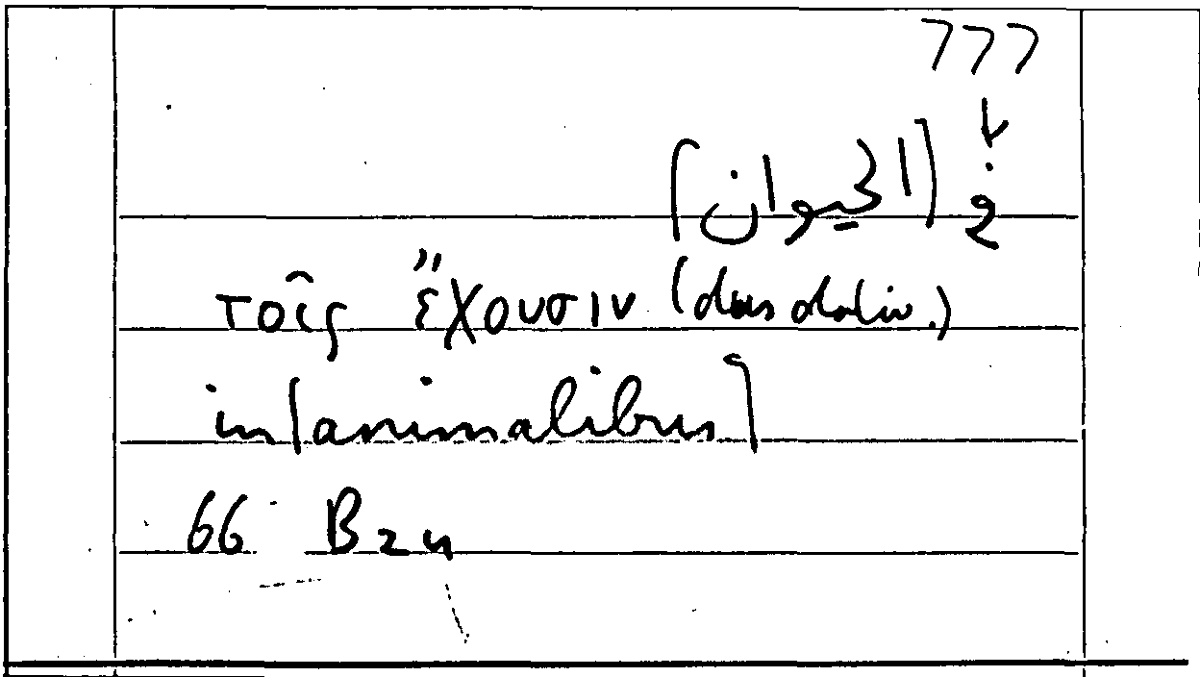 777
في [الحيوان]
τοῖς ἔχουσιν (das dativ.)
in [animalibus]
66 B 24